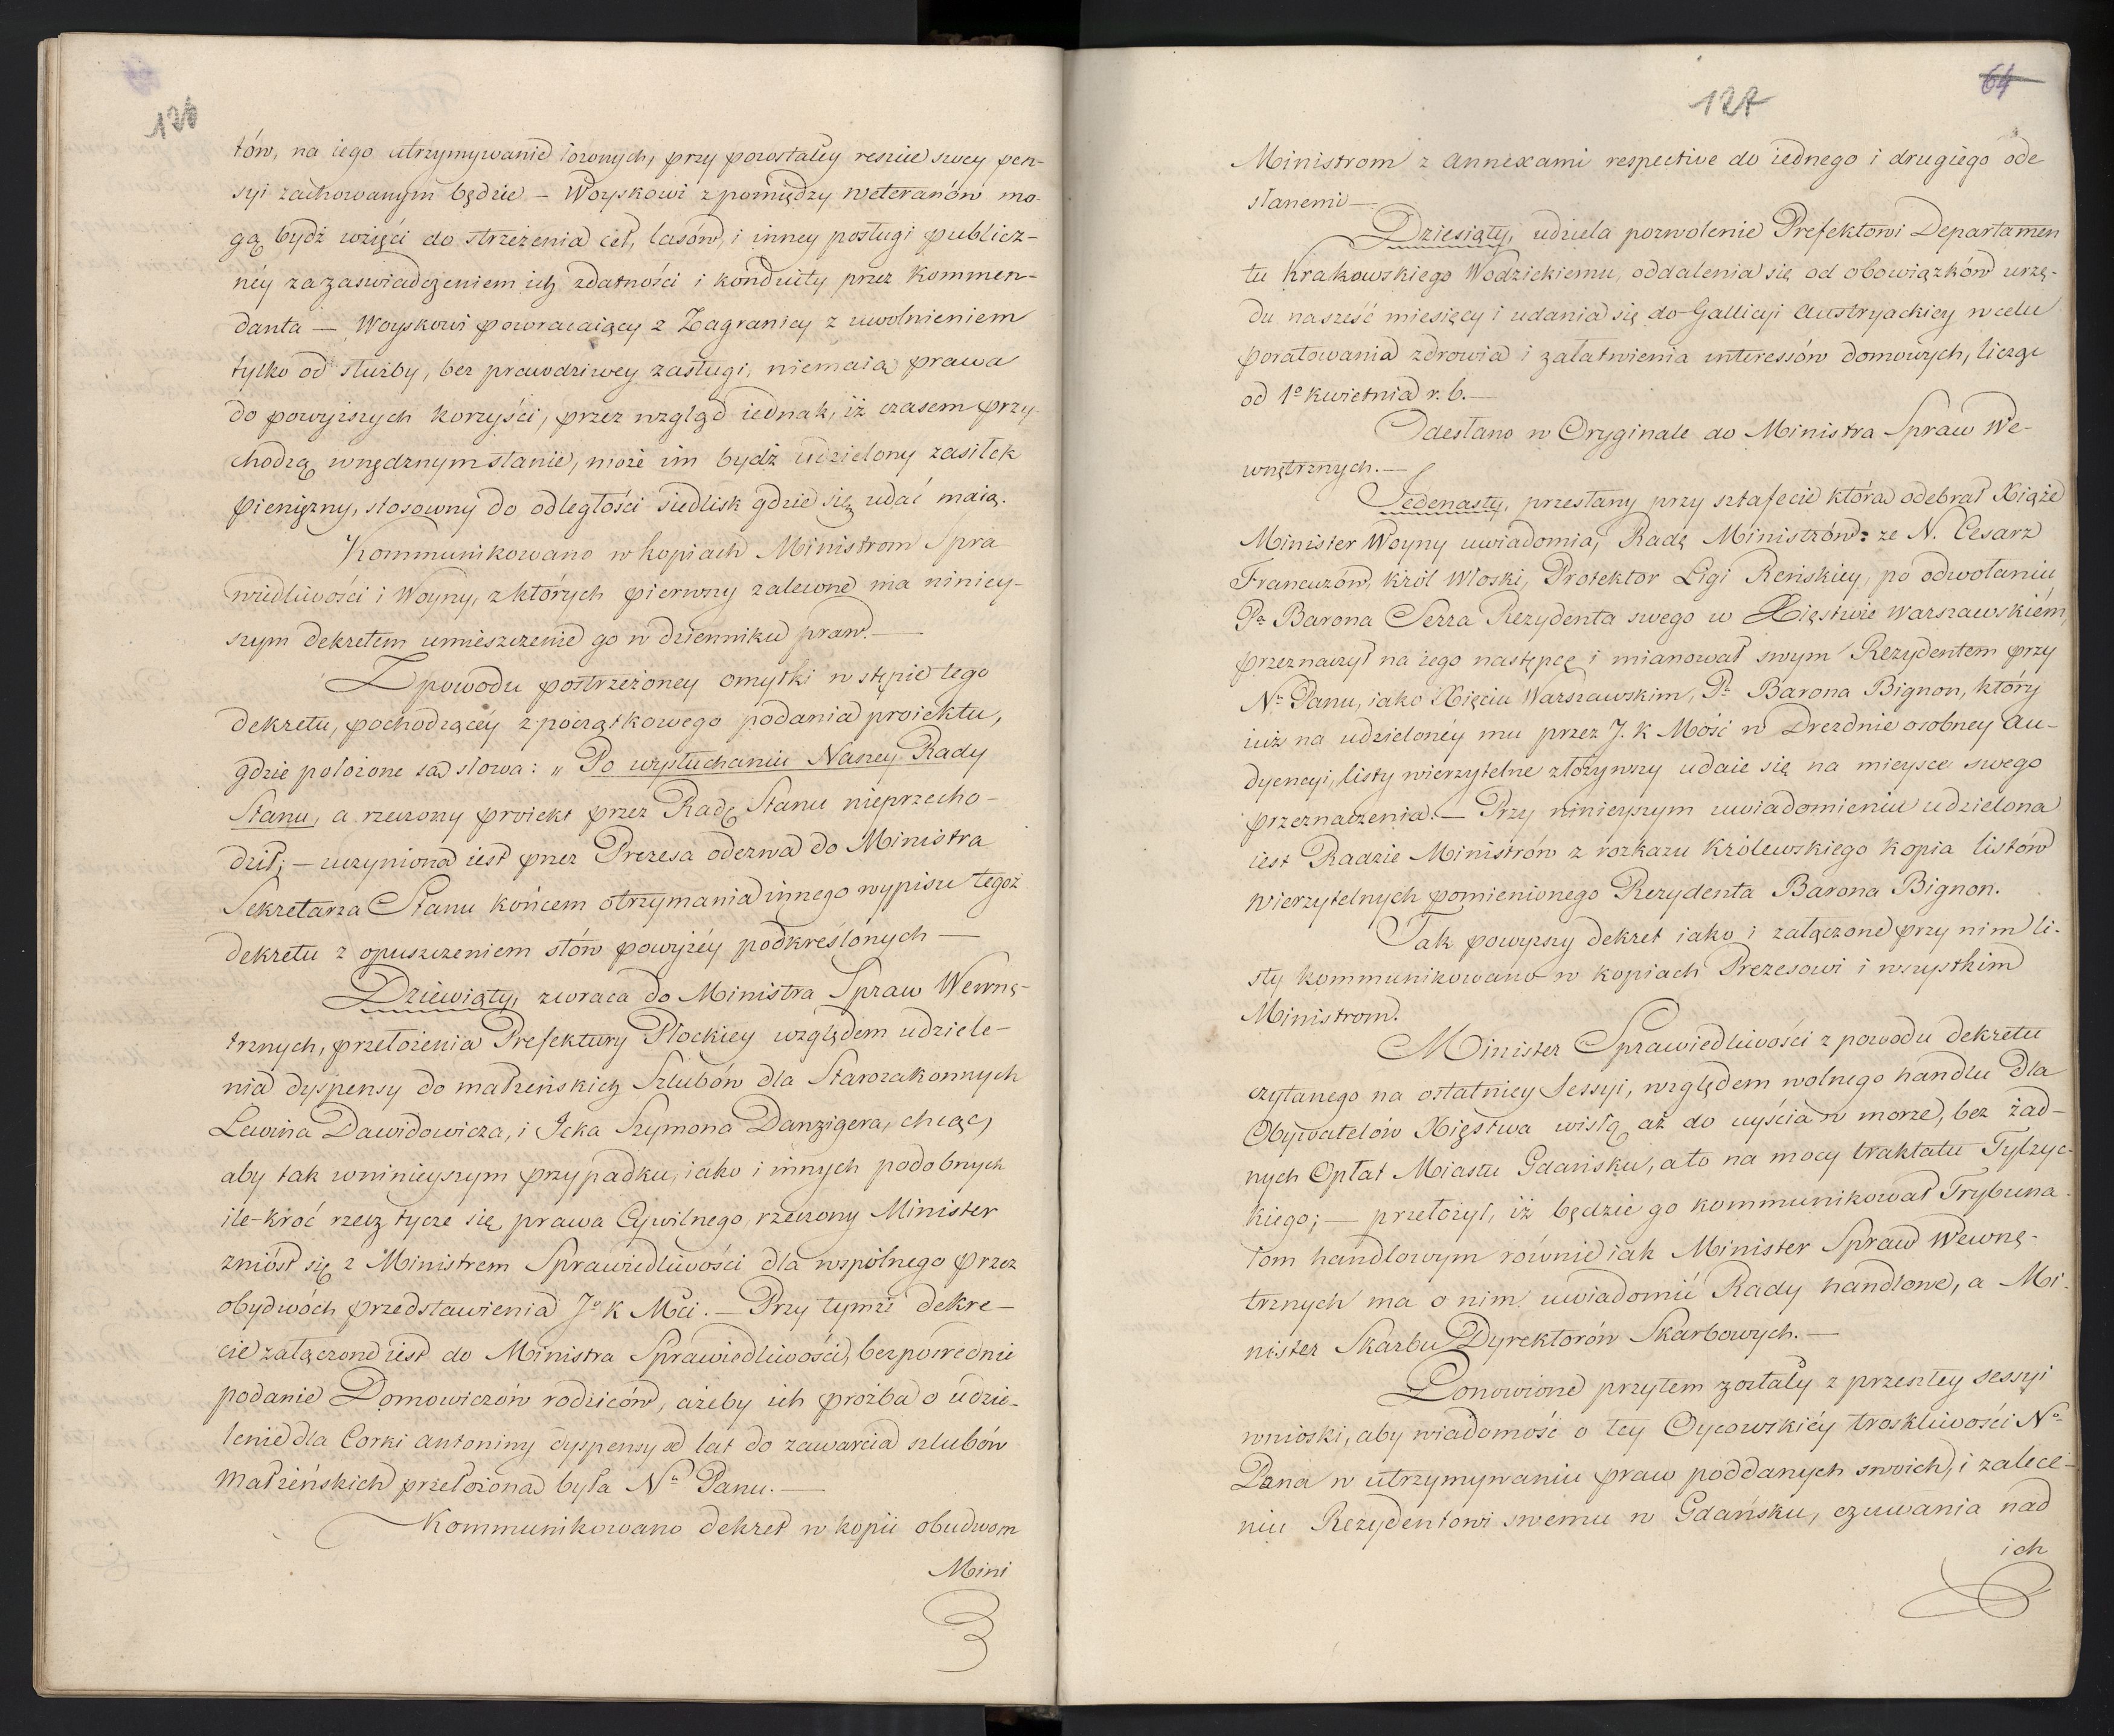 126
tów, na iego utrzymywanie łożonych, przy pozostałey reszcie swey pen-
syi zachowanym będzie – Woyskowi z pomiędzy Weteranów mo-
gą bydź wzięci do strzeżenia ceł, lasów, i inney posługi publicz-
néy za zaswiadczeniem ich zdatności i konduity przez Kommen-
danta — Woyskowi powracaiący z Zagranicy z uwolnieniem
tylko od służby, bez prawdziwey zasługi, niemaią prawa
do powyższych korzyści, przez wzgląd iednak, iż czasem przy-
chodzą w nędznym stanie, może im bydź udzielony zasiłek
pieniężny, stosowny do odległości siedlisk gdzie się udać maią.
Kommunikowano w kopiach Ministrom Spra
wiedliwości i Woyny, z których pierwszy zalecone ma niniey-
szym dekretem umieszczenie go w dzienniku praw.—
Z powodu postrzeżoney omyłki w stępie tego
dekretu, pochodzącéy z początkowego podania proiektu,
gdzie położone są słowa: „Po wysłuchaniu Naszey Rady
Stanu, a rzeczony proiekt przez Radę Stanu nieprzecho-
dził; — uczyniona iest przez Prezesa odezwa do Ministra
Sekretarza Stanu końcem otrzymania innego wypisu tegoż
dekretu z opuszczeniem słów powyżéy podkreślonych —
Dziewiąty, zwraca do Ministra Spraw Wewnę-
trznych, przełożenia Prefektury Płockiey względem udziele-
nia dyspensy do małżeńskich Szlubów dla Starozakonnych
Lewina Dawidowicza, i Icka Szymona Danzigera, chcąc,
aby tak w ninieyszym przypadku, iako i innych podobnych
ile-kroć rzecz tycze się prawa Cywilnego, rzeczony Minister
zniósł się z Ministrem Sprawiedliwości dla wspólnego przez
obydwóch przedstawienia Jo K Mci. — Przy tymże dekre-
cie załączone iest do Ministra Sprawiedliwości, bezpośrednie
podanie Domowiczów rodziców, ażeby ich prożba o udzie-
lenie dla Corki Antoniny dyspensy od lat do zawarcia szlubów
Małżeńskich przełożona była Nu Panu. —
Kommunikowano dekret w kopii obudwom
Mini
127
64
Ministrom z annexami respective do iednego i drugiego ode
słanemi —
Dziesiąty, udziela pozwolenie Prefektowi Departamen
tu Krakowskiego Wodzickiemu, oddalenia się od obowiązków urzę-
du na sześć miesięcy i udania się do Gallicyi Austryackiey w celu
poratowania zdrowia i załatwienia interessów domowych, licząc
od 1o kwietnia r. b.—
Odesłano w Oryginale do Ministra Spraw We-
wnętrznych.—
Jedenasty, przesłany przy sztafecie która odebrał Xiąże
Minister Woyny uwiadomia, Radę Ministrów: ze N. Cesarz
Francuzów, król Włoski, Protektor Ligi Reńskiey, po odwołaniu
Pa Barona Serra Rezydenta swego w Xięstwie Warszawskiém,
przeznaczył na iego następcę i mianował swym Rezydentem przy
Nu Panu, iako Xięciu Warszawskim, Pa Barona Bignon, który
iuż na udzielonéy mu przez J. K Mość w Dreznie osobney au-
dyencyi, listy wierzytelne złożywszy udaie się na mieysce swego
przeznaczenia. — Przy ninieyszym uwiadomieniu udzielona
iest Radzie Ministrów z rozkazu Królewskiego kopia listów
wierzytelnych pomienionego Rezydenta Barona Bignon.
Tak powyższy dekret iako i załączone przy nim li-
sty kommunikowano w kopiach Prezesowi i wszystkim
Ministrom.
Minister Sprawiedliwości z powodu dekretu
czytanego na ostatniey Sessyi, względem wolnego handlu dla
Obywatelów Xięstwa wisłą aż do uyścia w morze, bez żad-
nych Opłat Miastu Gdańsku, a to na mocy traktatu Tylzyc-
kiego; — przełożył, iż będzie go kommunikował Trybuna-
łom handlowym równie iak Minister Spraw Wewnę-
trznych ma o nim uwiadomić Rady handlowe, a Mi-
nister Skarbu Dyrektorów Skarbowych. —
Ponowione przytem zostały z przeszłey sessyi
wnioski, aby wiadomość o tey Oycowskiéy troskliwości No
Pana w utrzymywaniu praw poddanych swoich, i zalece-
niu Rezydentowi swemu w Gdańsku, czuwania nad
ich